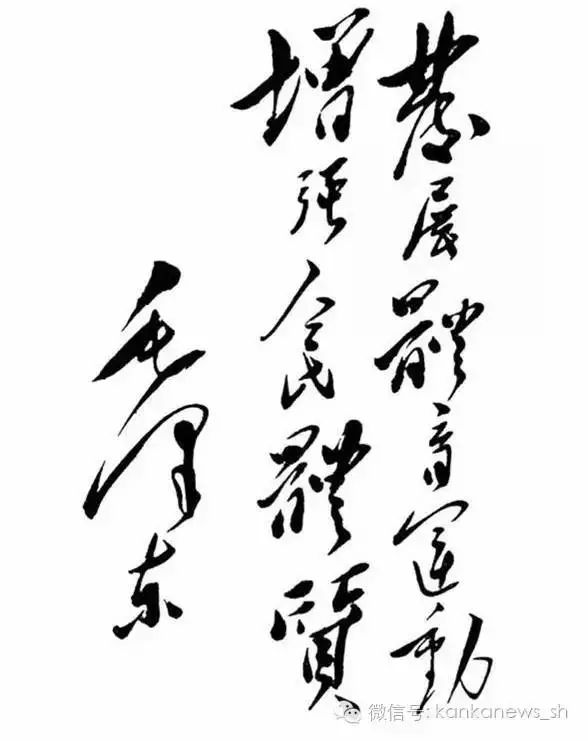 發展體育運動
增强人民體質
毛泽东
微信号: kankanews_sh